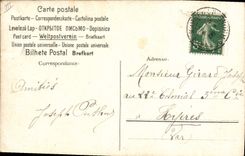 Carte postale
Postkarte - Correspondenzkarte - Cartolina postale
Levelező-Lap - ОТКРЫТОЕ ПИСЬМО - Dopisnice
Post card - Weltpostverein - Briefkaart
Union postale universelle - Unione postale universale
Bilhete Postal Brefkort
Correspondance
Amitiés
Joseph
Monsieur Girard
au 22e Colonial 3ème Cie
Hyères
Var